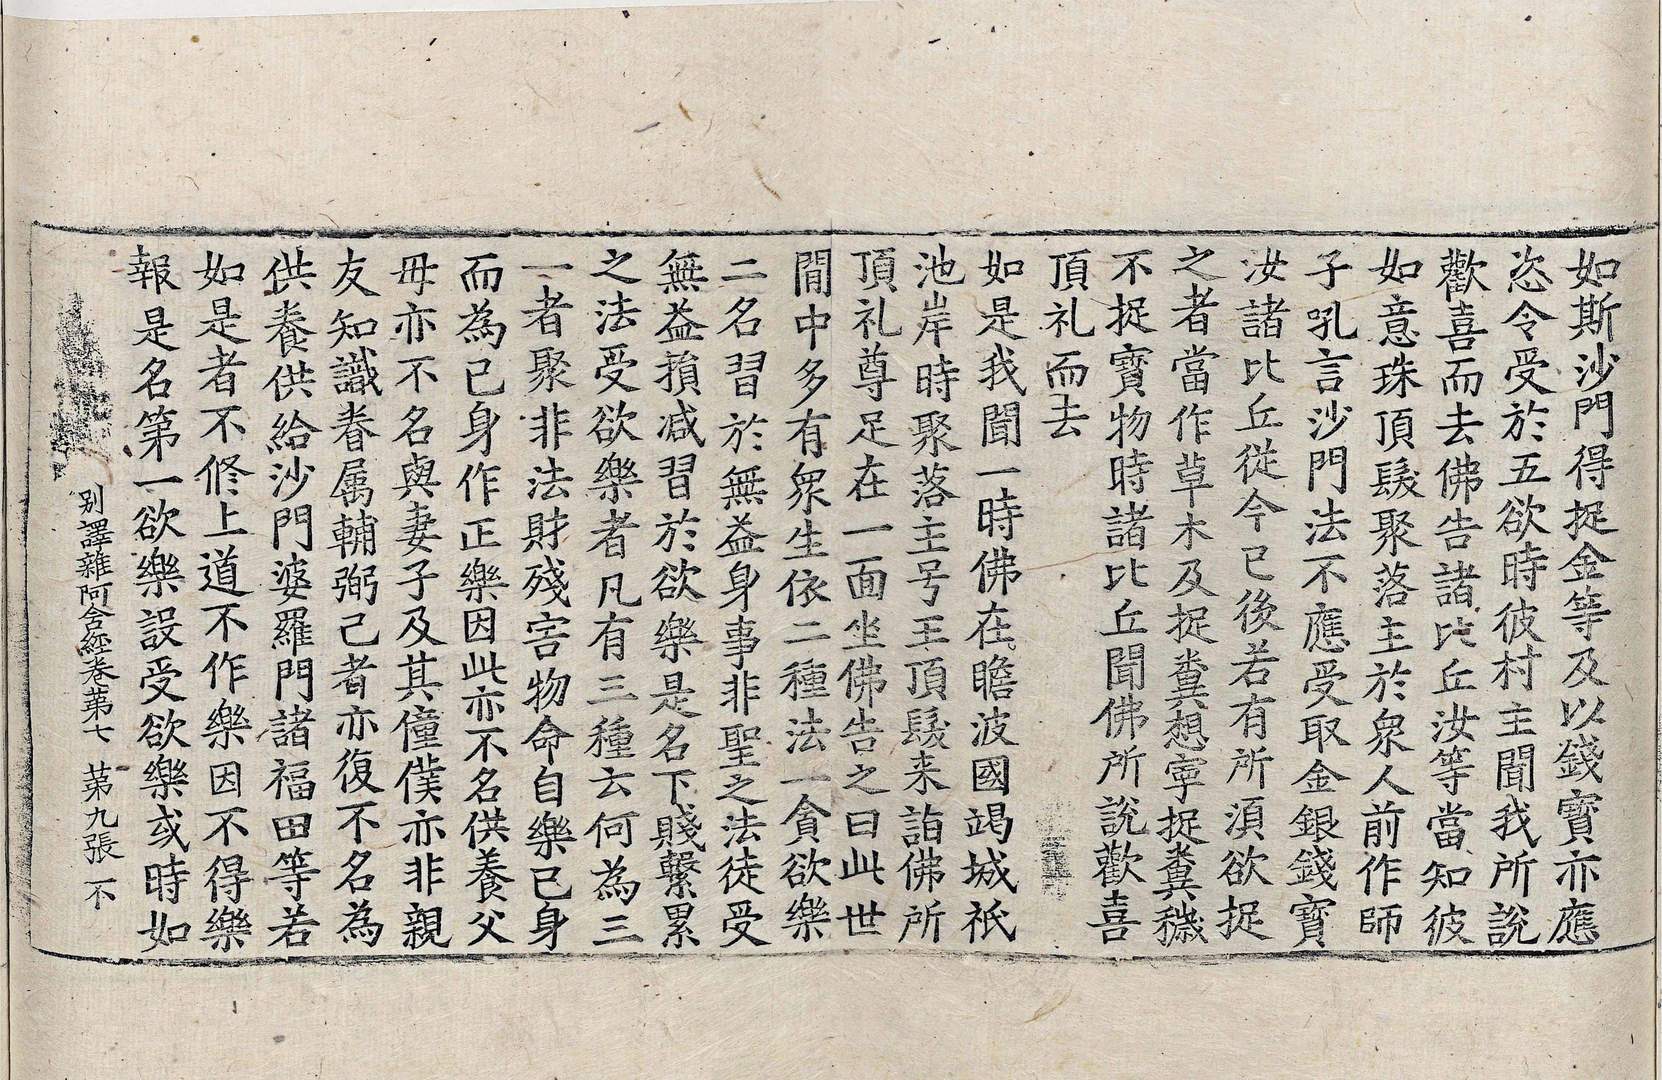 如斯沙門得捉金等及以錢寶亦應
恣令受於五欲時彼村主聞我所說
歡喜而去佛告諸比丘汝等當知彼
如意珠頂髮聚落主於衆人前作師
子吼言沙門法不應受取金銀錢寶
汝諸比丘從今已後若有所湏欲捉
之者當作草木及捉糞想寧捉糞穢
不捉寶物時諸比丘聞佛所說歡喜
頂礼而去
如是我聞一時佛在瞻波國竭城祇
池岸時聚落主号王頂髮来詣佛所
頂礼尊足在一面坐佛告之曰此世
間中多有衆生依二種法一貪欲樂
二名習於無益身事非聖之法徒受
無益損减習於欲樂是名下賤繫累
之法受欲樂者凡有三種云何為三
一者聚非法財殘害物命自樂已身
而為已身作正樂因此亦不名供養父
母亦不名與妻子及其僮僕亦非親
友知識眷属輔弼己者亦復不名為
供養供給沙門婆羅門諸福田等若
如是者不修上道不作樂因不得樂
報是名第一欲樂設受欲樂或時如
别譯雜阿含經卷苐七 苐九張 不